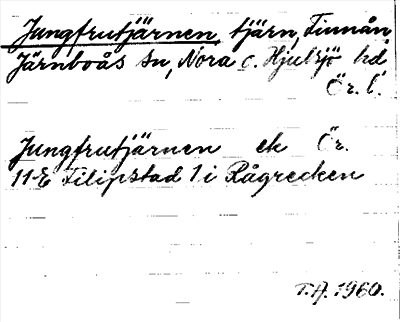 Jungfrutjärnen, tjärn, Finnån,
Järnboås sn, Nora o. Hjulsjö hd
Ör. l.
Jungfrutjärnen ek Ör.
11E Filipstad 1 i Rågrecken
T.A. 1960.